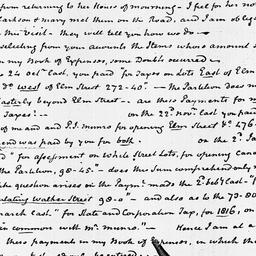 upon returning to her House of mourning - I feel for her
Clarkson & Mary met them on the Road, and I am
this Visit - they will tell you how we do -
selecting from your accounts the Items whose amount
in my Book of Expenses, some Doubts occurred -
24 Octr last, you paid for Taxes on Lots East of Elm
Do West of Elm Street 272-40. - the Partition Does
Easterly beyond Elm Street - are these Payments for
Taxes? - on the 22d Novr last you paid
of me and P.J. Munro for opening Elm Street $ 476
and was paid by you for both. on the 2d
for assessment on White Street Lots, for opening
the Partition, 90-45 - does this Sum comprehend only
the question arises on the Paymt made the 2d Feby last -
regulating Walker Street 90-0" - and also as to the 73-80
March last "for State and Corporation Tax, for 1816, on
in common with Mr Munro." - Hence I am at a
these payments in my Book of Expenses, in which